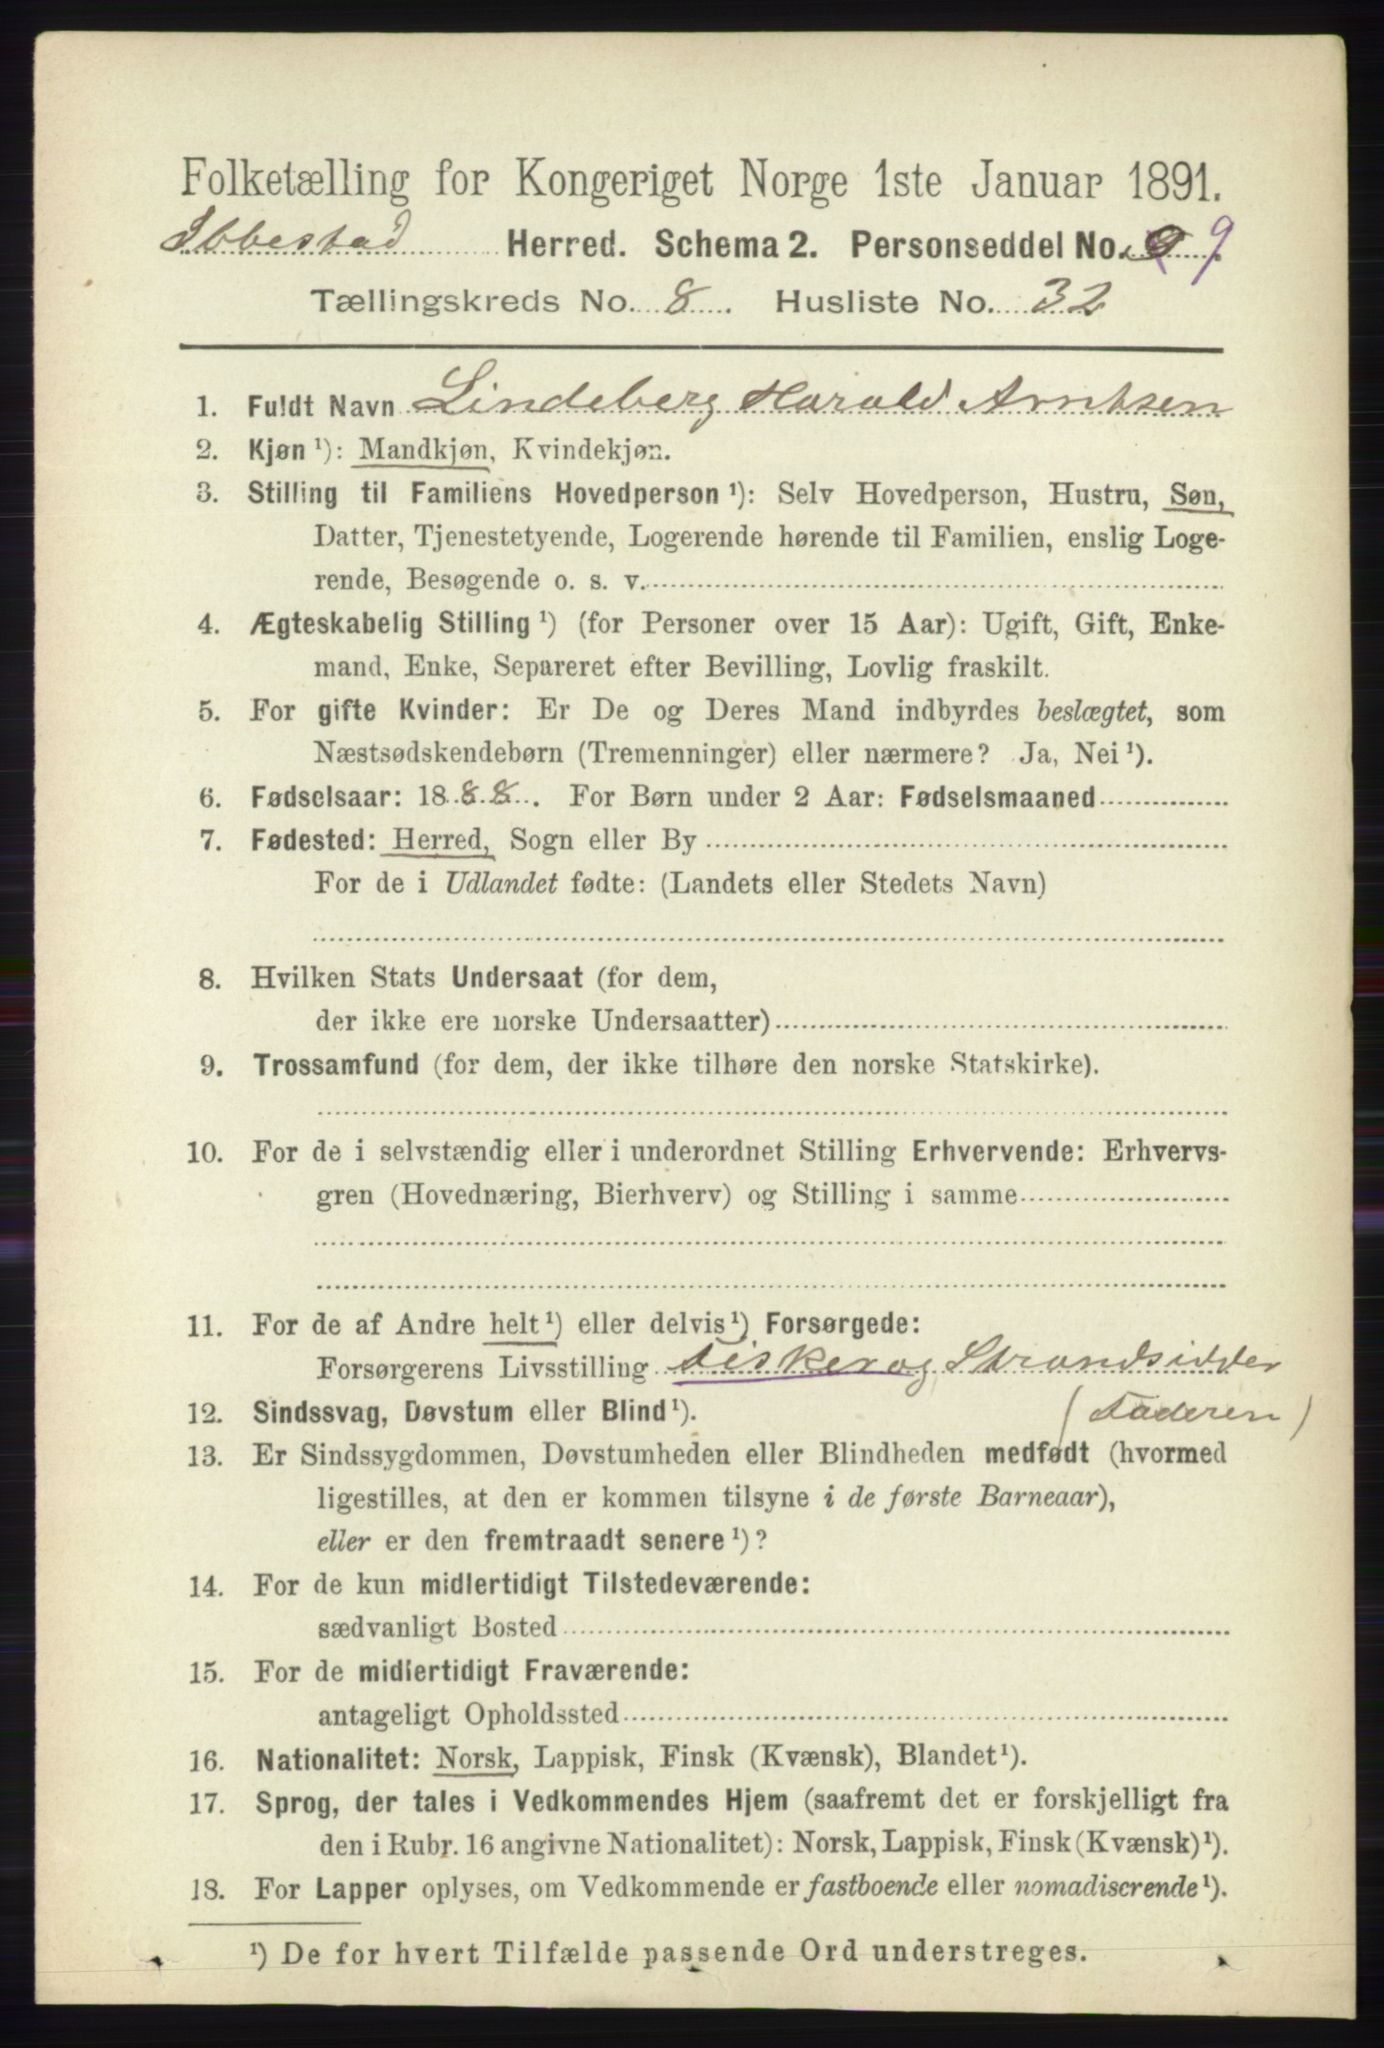 Folketælling for Kongeriget Norge 1ste Januar 1891.
Ibbestad Herred. Schema 2. Personseddel No. 9
Tællingskreds No. 8. Husliste No. 32
1. Fuldt Navn Lindeberg Harald Arntsen
2. Kjøn ¹): Mandkjøn, Kvindekjøn.
3. Stilling til Familiens Hovedperson ¹): Selv Hovedperson, Hustru, Søn,
Datter, Tjenestetyende, Logerende hørende til Familien, enslig Loge-
rende, Besøgende o. s. v.
4. Ægteskabelig Stilling ¹) (for Personer over 15 Aar): Ugift, Gift, Enke-
mand, Enke, Separeret efter Bevilling, Lovlig fraskilt.
5. For gifte Kvinder: Er De og Deres Mand indbyrdes beslægtet, som
Næstsødskendebørn (Tremenninger) eller nærmere? Ja, Nei ¹).
6. Fødselsaar: 1888. For Børn under 2 Aar: Fødselsmaaned
7. Fødested: Herred, Sogn eller By
For de i Udlandet fødte: (Landets eller Stedets Navn)
8. Hvilken Stats Undersaat (for dem,
der ikke ere norske Undersaatter)
9. Trossamfund (for dem, der ikke tilhøre den norske Statskirke).
10. For de i selvstændig eller i underordnet Stilling Erhvervende: Erhvervs-
gren (Hovednæring, Bierhverv) og Stilling i samme
11. For de af Andre helt ¹) eller delvis ¹) Forsørgede:
Forsørgerens Livsstilling Fisker og Strandsidder
12. Sindssvag, Døvstum eller Blind ¹). (Faderen)
13. Er Sindssygdommen, Døvstumheden eller Blindheden medfødt (hvormed
ligestilles, at den er kommen tilsyne i de første Barneaar),
eller er den fremtraadt senere ¹)?
14. For de kun midlertidigt Tilstedeværende:
sædvanligt Bosted
15. For de midlertidigt Fraværende:
antageligt Opholdssted
16. Nationalitet: Norsk, Lappisk, Finsk (Kvænsk), Blandet ¹).
17. Sprog, der tales i Vedkommendes Hjem (saafremt det er forskjelligt fra
den i Rubr. 16 angivne Nationalitet): Norsk, Lappisk, Finsk (Kvænsk) ¹).
18. For Lapper oplyses, om Vedkommende er fastboende eller nomadiserende ¹).
¹) De for hvert Tilfælde passende Ord understreges.